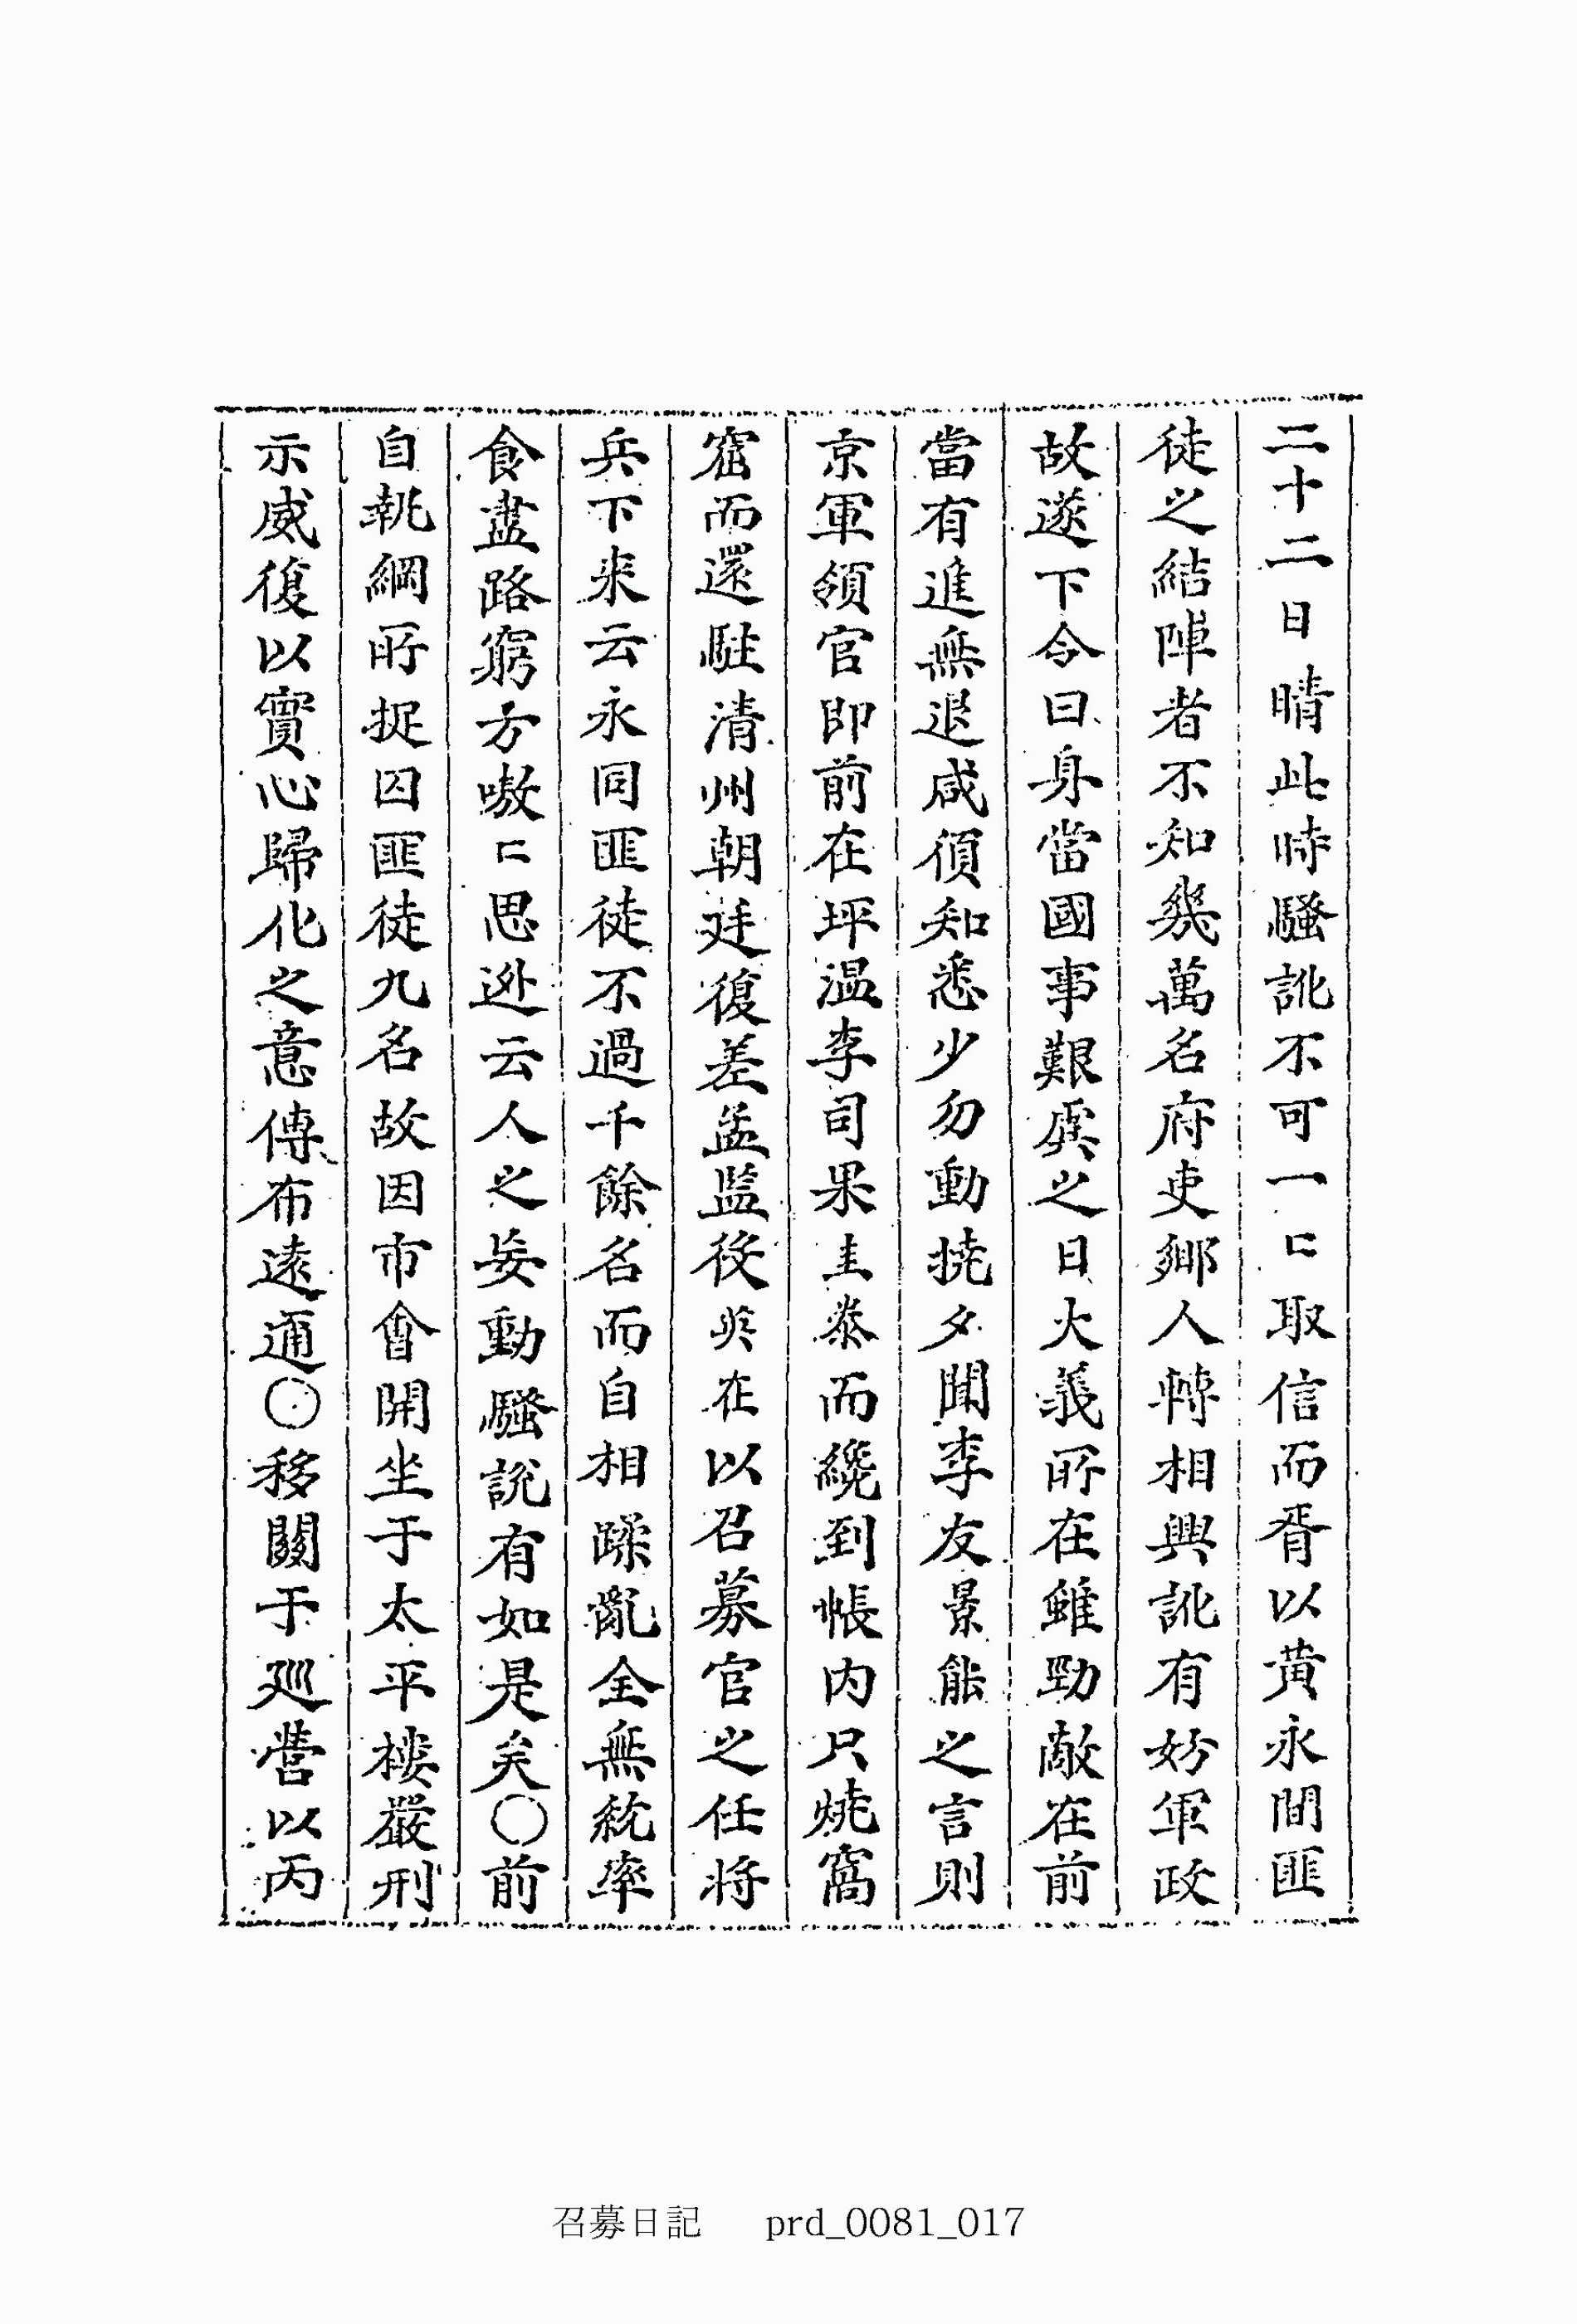 二十二日晴此時騷訛不可一〻取信而胥以黃永間匪
徒之結陣者不知幾萬名府吏鄉人轉相興訛有妨軍政
故遂下令曰身當國事艱虞之日大義所在雖勁敵在前
當有進無退咸須知悉少勿動撓夕聞李友景能之言則
京軍領官卽前在坪温李司果圭泰而纔到帳內只燒窩
窟而還駐清州朝廷復差孟監役英在以召募官之任將
兵下来云永同匪徒不過千餘名而自相蹂亂全無統率
食盡路窮方嗷〻思迯云人之妄動騷說有如是矣○前
自執綱所捉囚匪徒九名故因市會開坐于太平樓嚴刑
示威復以實心歸化之意傳布遠邇○移關于巡營以丙
召募日記 prd_0081_017